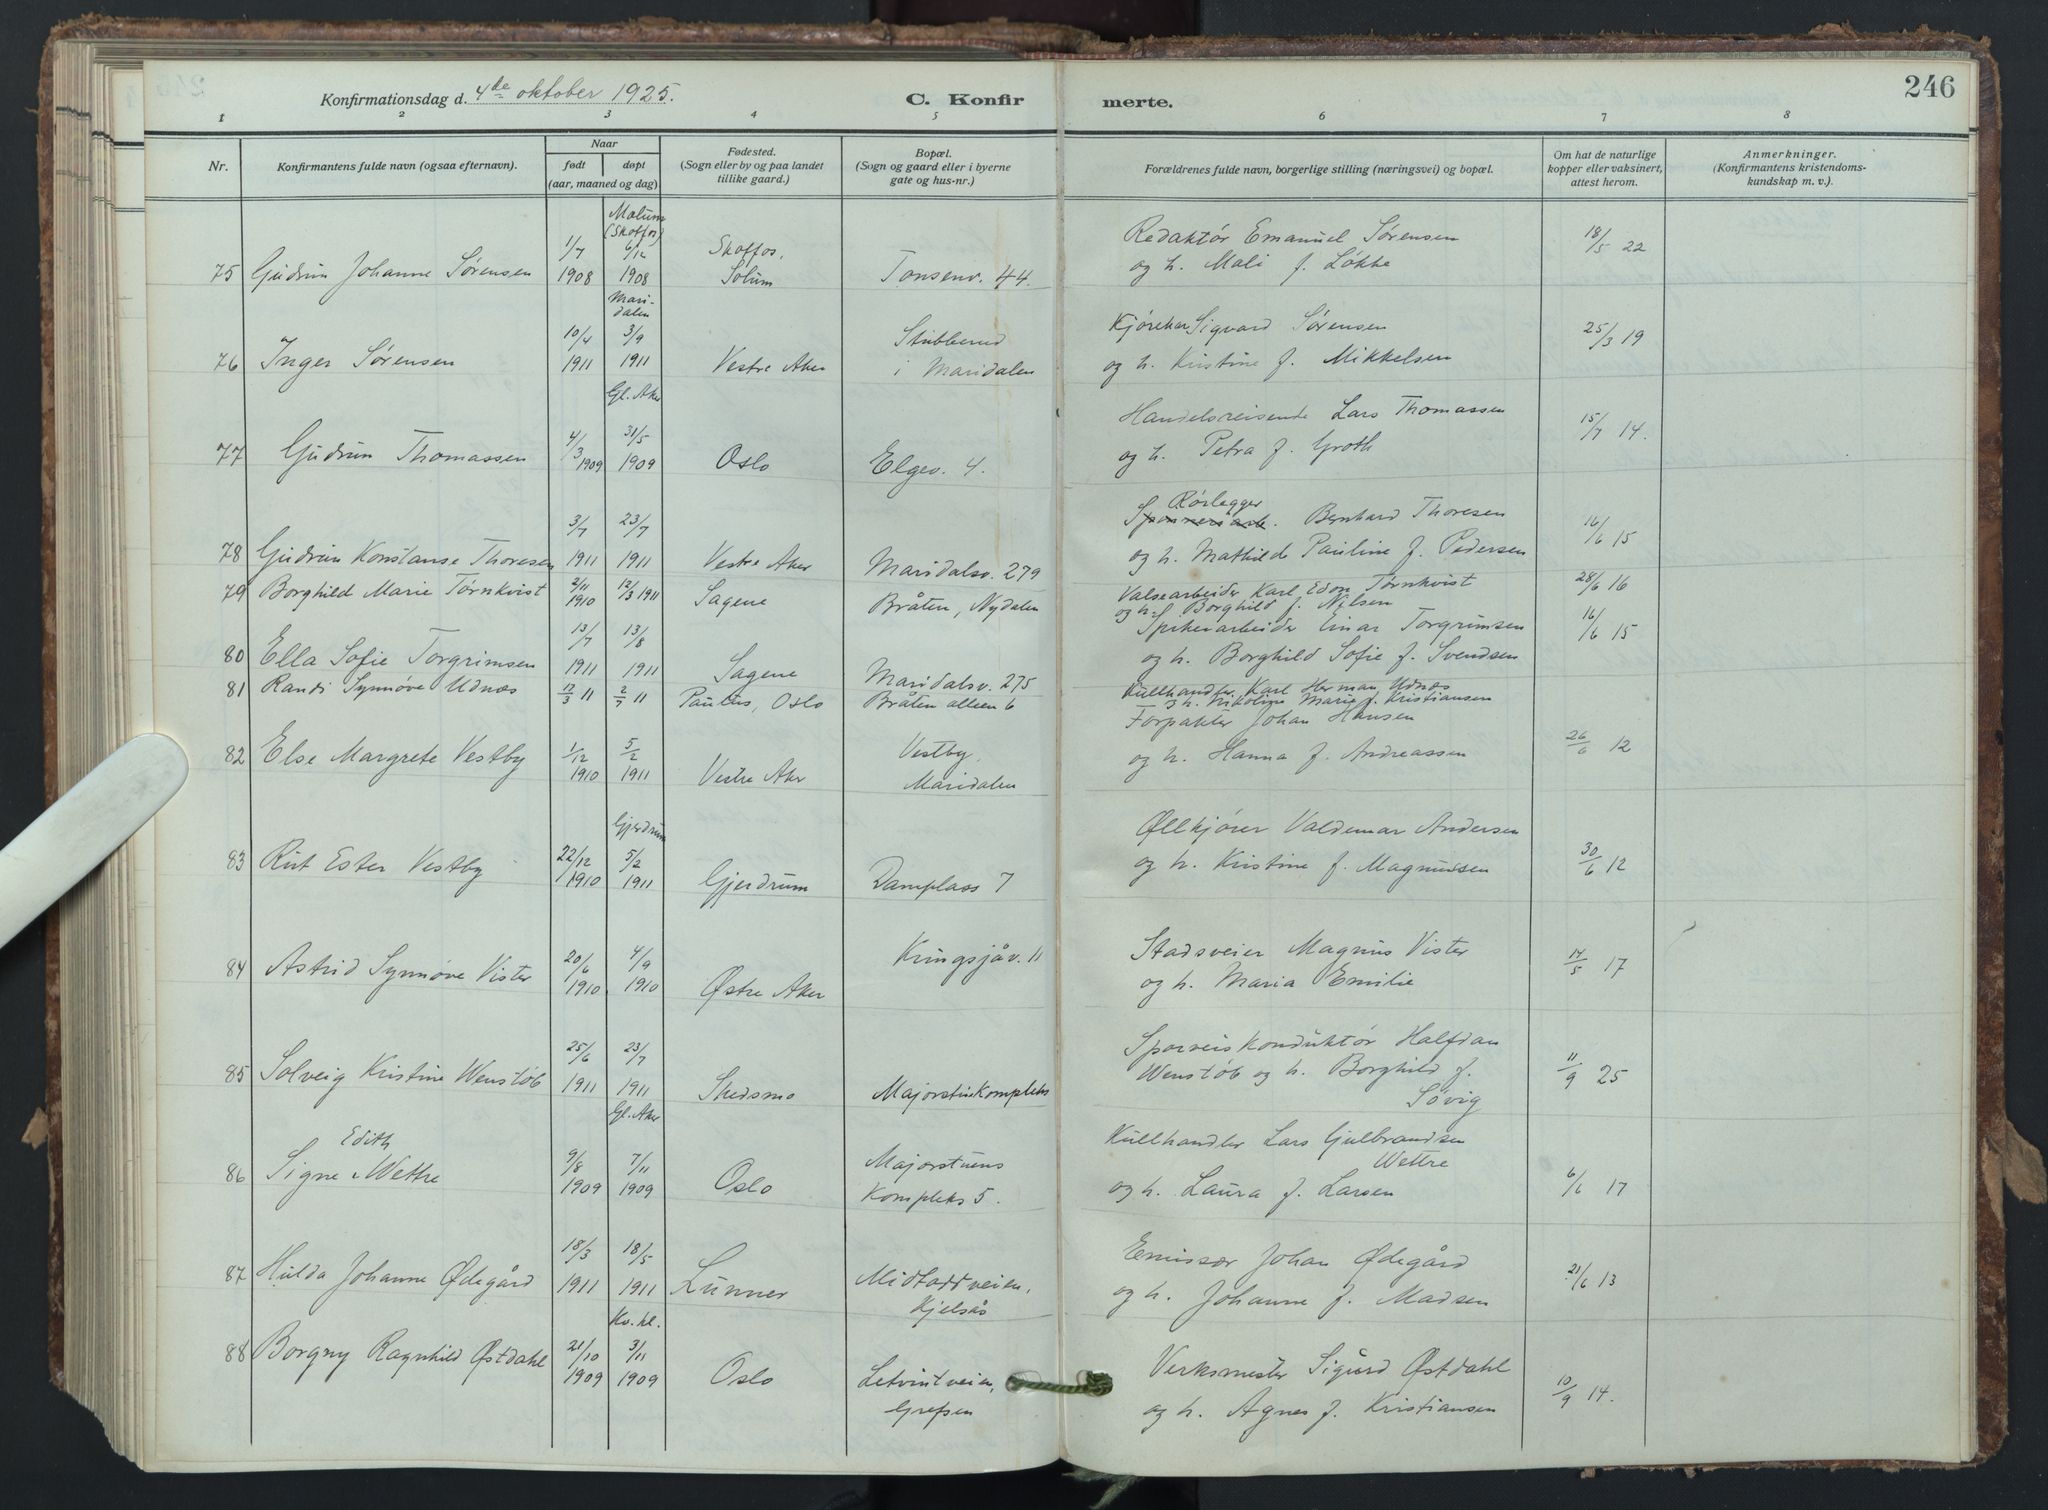 246
Konfirmationsdag d. 4de oktober 1925.
C. Konfir
merte.
1 2 3 4 5 6 7 8
Nr.
Konfirmantens fulde navn (ogsaa efternavn).
Naar
født døpt
(aar, maaned og dag)
Fødested.
(Sogn eller by og paa landet
tillike gaard.)
Bopæl.
(Sogn og gaard eller i byerne
gate og hus-nr.)
Forældrenes fulde navn, borgerlige stilling (næringsvei) og bopæl.
Om hat de naturlige
kopper eller vaksinert,
attest herom.
Anmerkninger.
(Konfirmantens kristendoms-
kundskap m. v.).
Melum
(Skotfos)
1/7 6/12 Skotfos, Redaktør Emanuel Sørensen 18/5 22
75 Gudrun Johanne Sørensen 1908 1908 Solum Tonsenv. 44. og h. Mali f. Løkke
Mari-
dalen
10/4 3/9 Stubberud Kjørekar Sigvard Sørensen 25/3 19
76 Inger Sørensen 1911 1911 Vestre Aker i Maridalen og h. Kristine f. Mikkelsen
Gl. Aker
4/3 31/5 Handelsreisende Lars Thomassen 15/7 14.
77 Gudrun Thomassen 1909 1909 Oslo Elgev. 4. og h. Petra f. Groth
Rørlegger
3/7 23/7 Bernhard Thoresen 16/6 15
78 Gudrun Konstanse Thoresen 1911 1911 Vestre Aker Maridalsv. 279 og h. Mathilde Pauline f. Pedersen
79 Borghild Marie Tørnkvist 2/11 1910 12/3 1911 Sagene Bråten, Nydalen Valsearbeider Karl Edon Tørnkvist 28/6 16
og h. Borghild f. Nilsen
13/7 13/8 Spikerarbeider Einar Torgrimsen 16/6 15
80 Ella Sofie Torgrimsen 1911 1911 Sagene Maridalsv. 275 og h. Borghild Sofie f. Svendsen
81 Randi Synnøve Udnæs 12/3 11 2/7 11 Paulus, Oslo Bråten alleen 6 Kullhandler Karl Herman Udnæs
og h. Nikoline Marie f. Kristiansen
Forpakter Johan Hansen
82 Else Margrete Vestby 1/12 1910 5/2 1911 Vestre Aker Vestby, og h. Hanna f. Andreassen 26/6 12
Maridalen
Gjerdrum
Ølkjører Valdemar Andersen
83 Rut Ester Vestby 22/12 1910 5/2 1911 Gjerdrum Damplass 7 og h. Kristine f. Magnussen 30/6 12
Kringsjåv. 11 Stadsveier Magnus Vister
84 Astrid Synnøve Vister 20/6 1910 4/9 1910 Østre Aker og h. Maria Emilie 14/5 17
25/6 23/7 Sporveiskonduktør Halfdan
85 Solveig Kristine Wenstøb 1911 1911 Skedsmo Majorstukompleks Wenstøb og h. Borghild f. 11/9 25
Søvig
Gl. Aker
Edith Kullhandler Lars Gulbrandsen
9/8 7/11 Majorstuens Wettre
86 Signe Wettre 1909 1909 Oslo Kompleks 5. og h. Laura f. Larsen 6/6 17
18/3 18/5 Emissær Johan Ødegård
87 Hulda Johanne Ødegård 1911 1911 Lunner Midtoddveien, og h. Johanne f. Madsen 21/6 13
Kjelsås
Kv. kl.
88 Borgny Ragnhild Østdahl 21/10 3/11 Verksmester Sigurd Østdahl
1909 1909 Oslo Letvintveien, og h. Agnes f. Kristiansen 10/9 14.
Grefsen